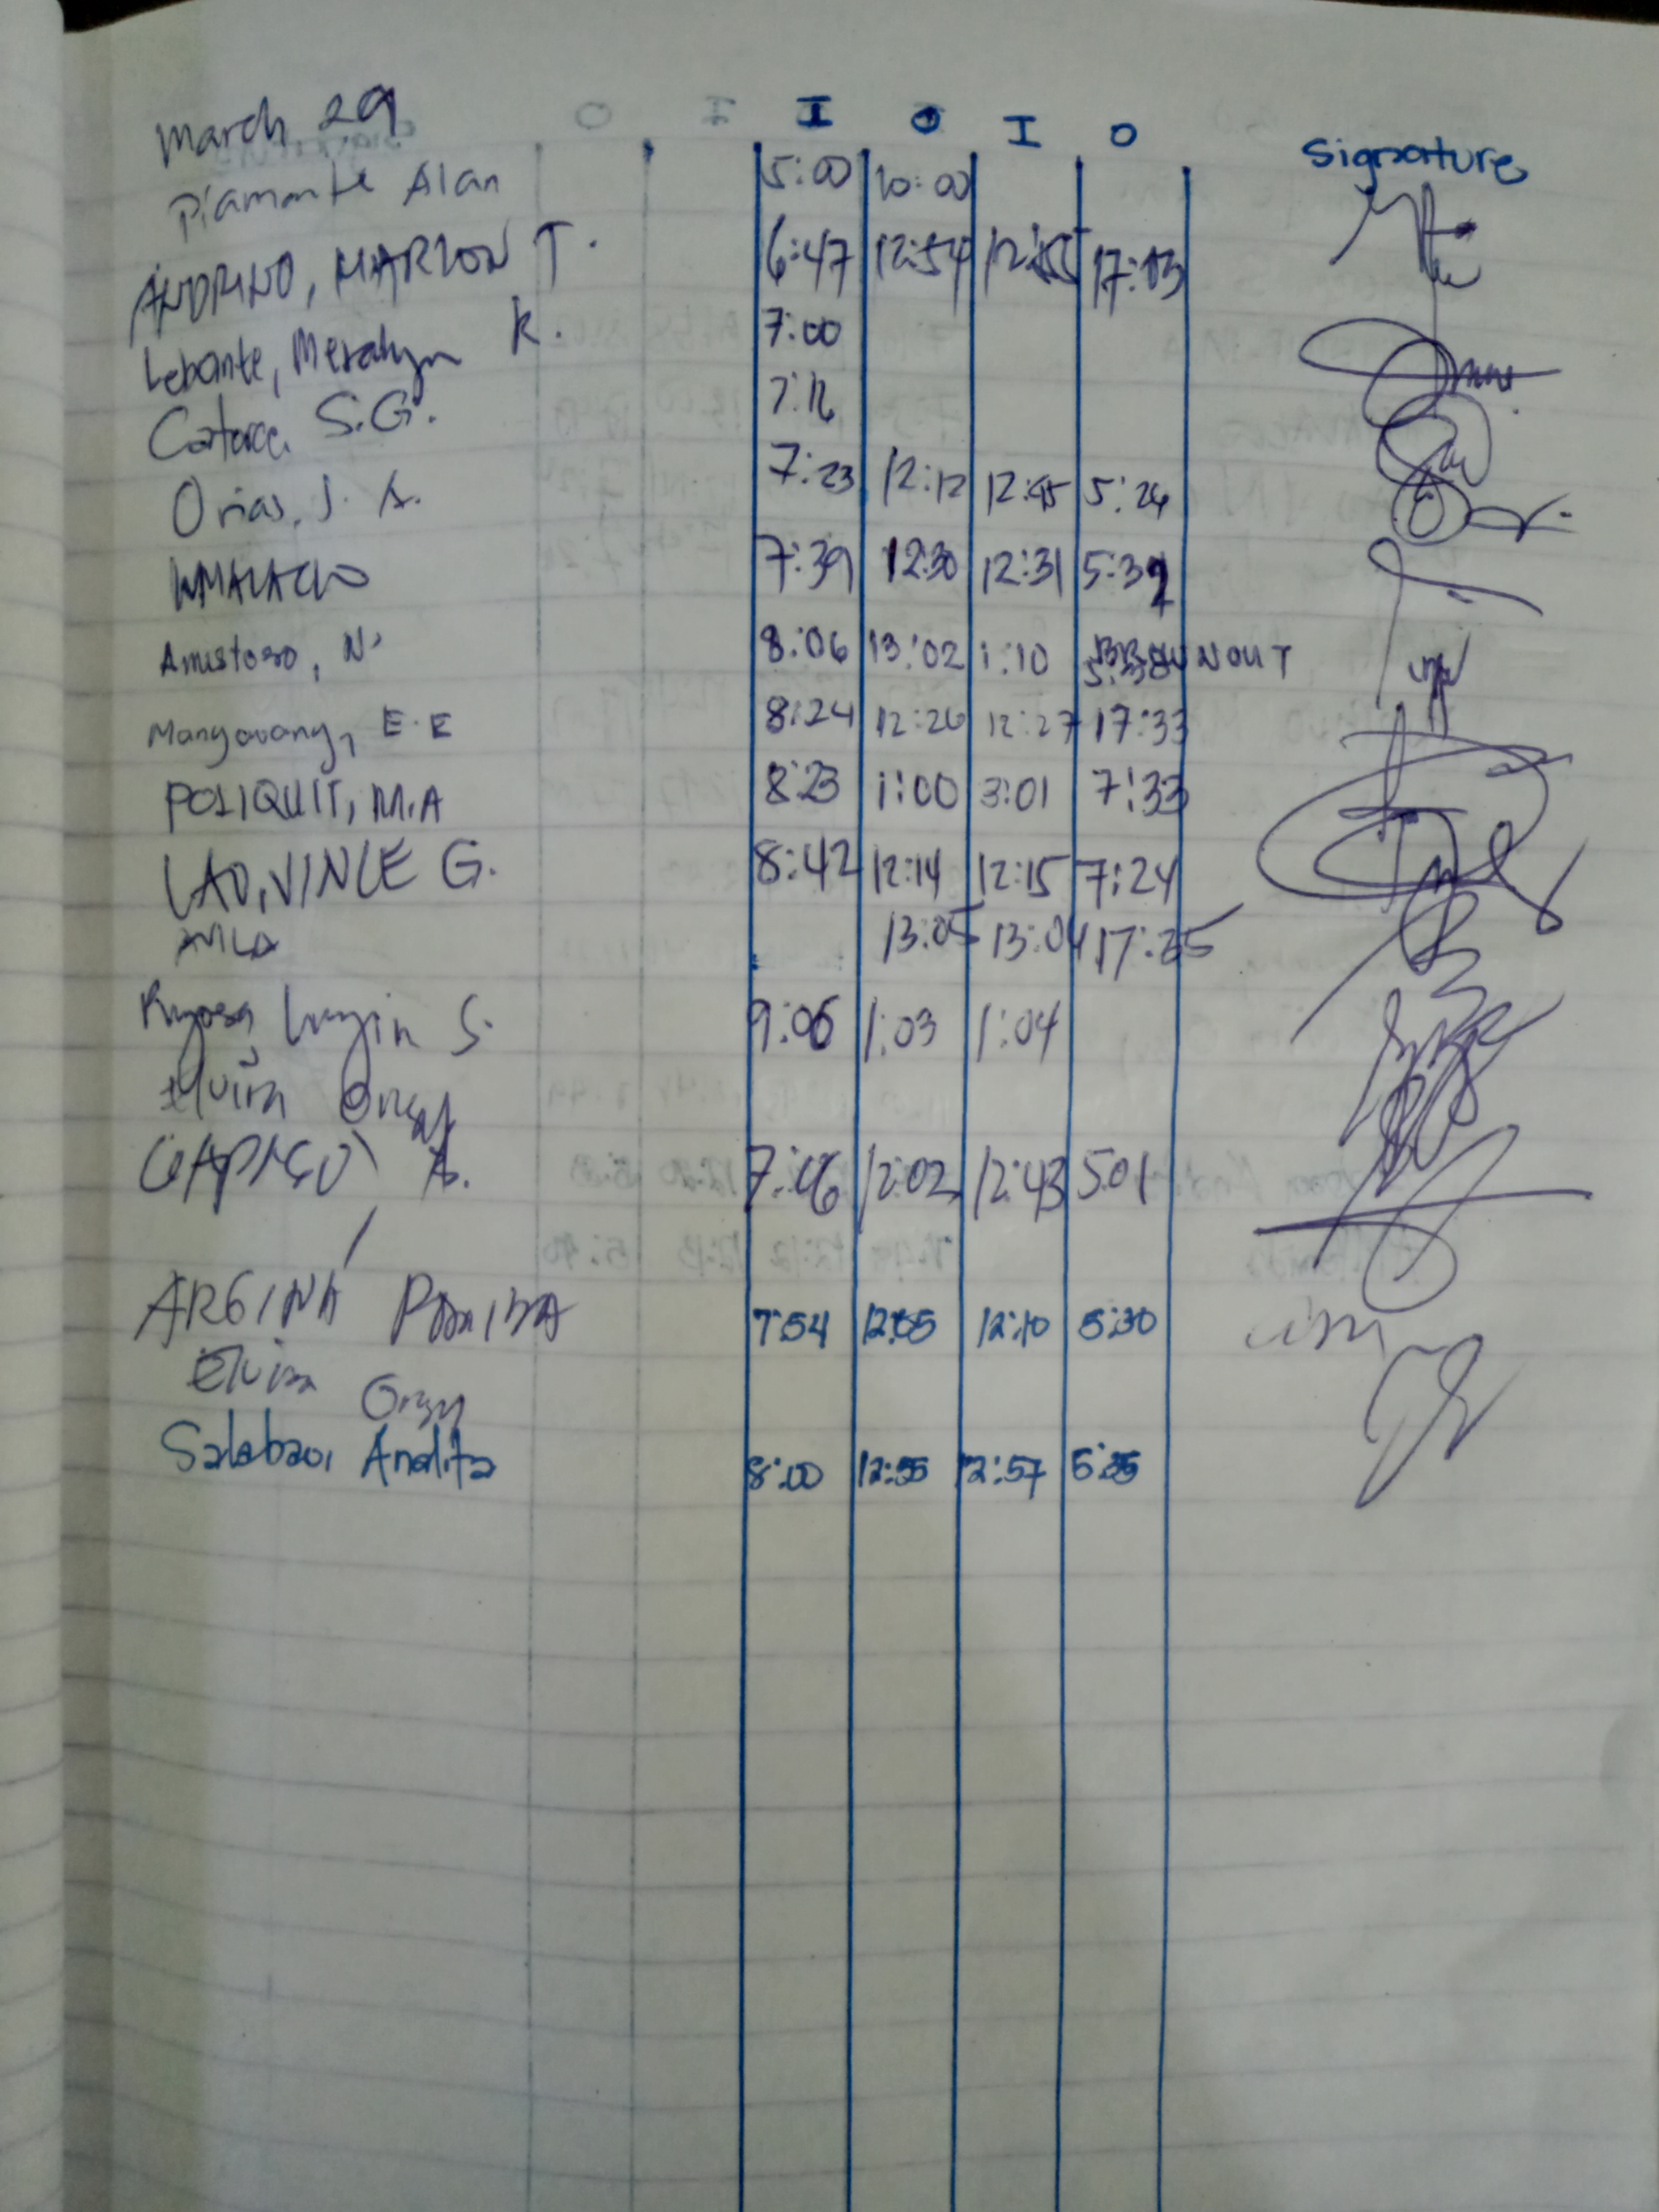 March 29 I O I O Signature
Piamonte Alan 5:00 10:00
ANDRINO, MARLON T. 6:47 12:54 12:55 17:03
Lebante, Meralyn K. 7:00
S.G. 7:16
Orias, J. A. 7:23 12:12 12:45 5:26
7:39 12:30 12:31 5:39
Amistoso, N. 8:06 13:02 1:10 BROWNOUT
Mangavang, E.E 8:24 12:26 12:27 17:33
POLIQUIT, M.A 8:23 1:00 3:01 7:33
LAO, VINCE G. 8:42 12:14 12:15 7:24
AVILA 13:05 13:04 17:35
S. 9:06 1:03 1:04
Elvira
A. 7:06 12:02 12:43 5:01
ARGINA 7:54 12:05 12:10 5:30
Elvira
Salabao, Analita 8:00 12:55 12:57 5:35